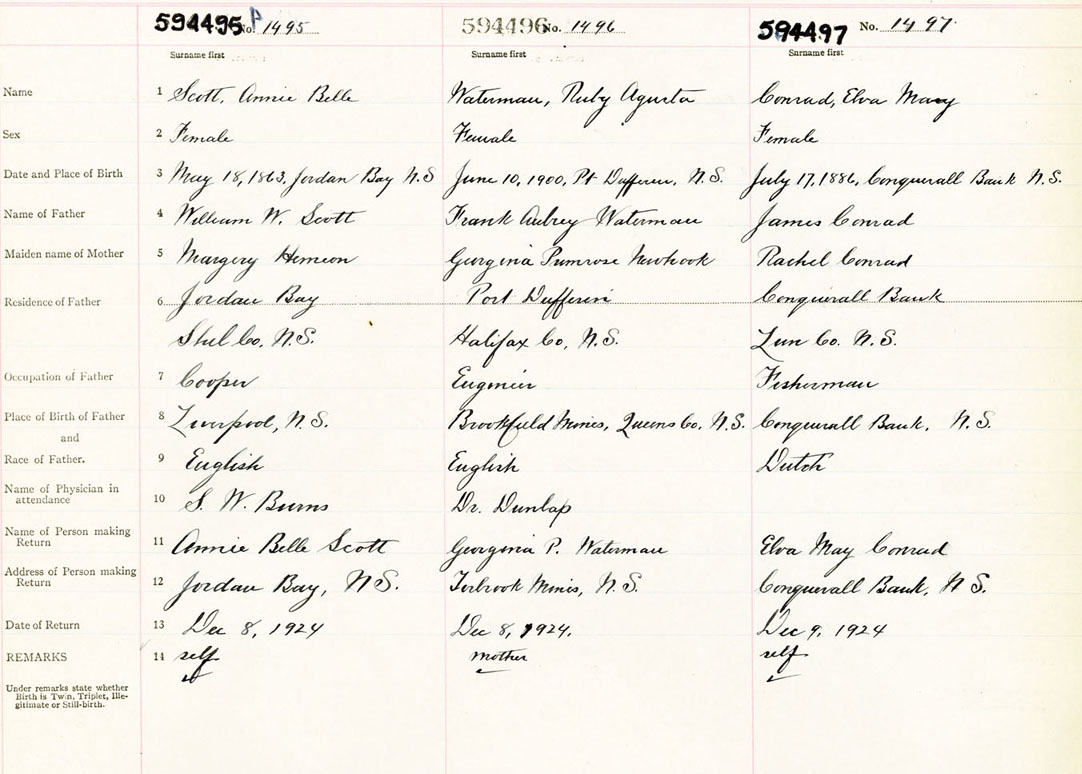 594495 No. 1495 594496 No. 1496 594497 No. 1497
Surname first Surname first Surname first
Name 1 Scott, Annie Belle Waterman, Ruby Agusta Conrad, Elva Mary
Sex 2 Female Female Female
Date and Place of Birth 3 May 18, 1863, Jordan Bay N.S June 10, 1900, Pt Dufferin, N.S. July 17, 1886, Conquerall Bank N.S.
Name of Father 4 William W. Scott Frank Aubrey Waterman James Conrad
Maiden name of Mother 5 Margery Hemeon Georgina Pumrose Newhook Rachel Conrad
Residence of Father 6 Jordan Bay Port Dufferin Conquerall Bank
Shel Co. N.S. Halifax Co, N.S. Lun Co. N.S.
Occupation of Father 7 Cooper Enginier Fisherman
Place of Birth of Father 8 Liverpool, N.S. Brookfield Mines, Queens Co. N.S. Conquerall Bank, N.S.
and
Race of Father. 9 English English Dutch
Name of Physician in
attendance 10 S. W. Burns Dr. Dunlap
Name of Person making
Return 11 Annie Belle Scott Georginia P. Waterman Elva May Conrad
Address of Person making
Return 12 Jordan Bay, N.S. Torbrook Mines, N.S. Conquerall Bank, N.S.
Date of Return 13 Dec 8, 1924 Dec 8, 1924. Dec 9, 1924
REMARKS 14 self mother self
Under remarks state whether
Birth is Twin, Triplet, Ille-
gitimate or Still-birth.